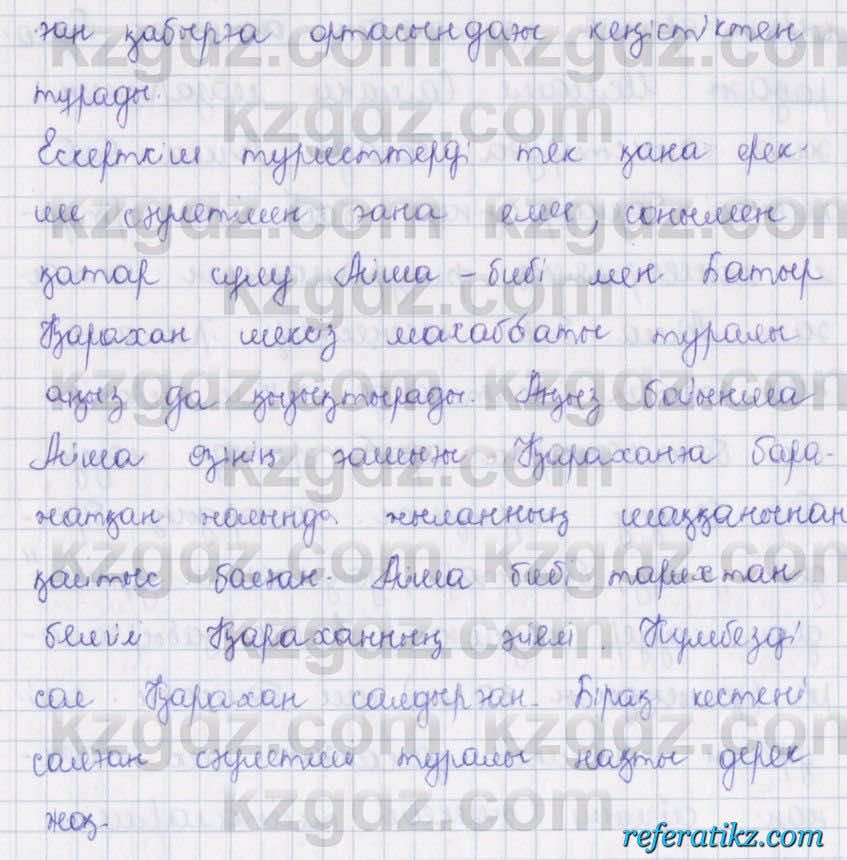 ған қабырға ортасындағы кеңістіктен
тұрады.
Ескерткіш туристтерді тек қана ерек-
ше сәулетімен ғана емес, сонымен
қатар сұлу Айша-бибі мен Батыр
Қарахан шексіз махаббаты туралы
аңыз да қызықтырады. Аңыз бойынша
Айша өзінің ғашығы Қараханға бара
жатқан жолында жыланның шаққанынан
қайтыс болған. Айша бибі тарихтан
белгілі Қараханның әйелі. Күмбезді
сол Қарахан салдырған. Бірақ кестені
салған сәулетші туралы нақты дерек
жоқ.
kzgdz.com
referatikz.com